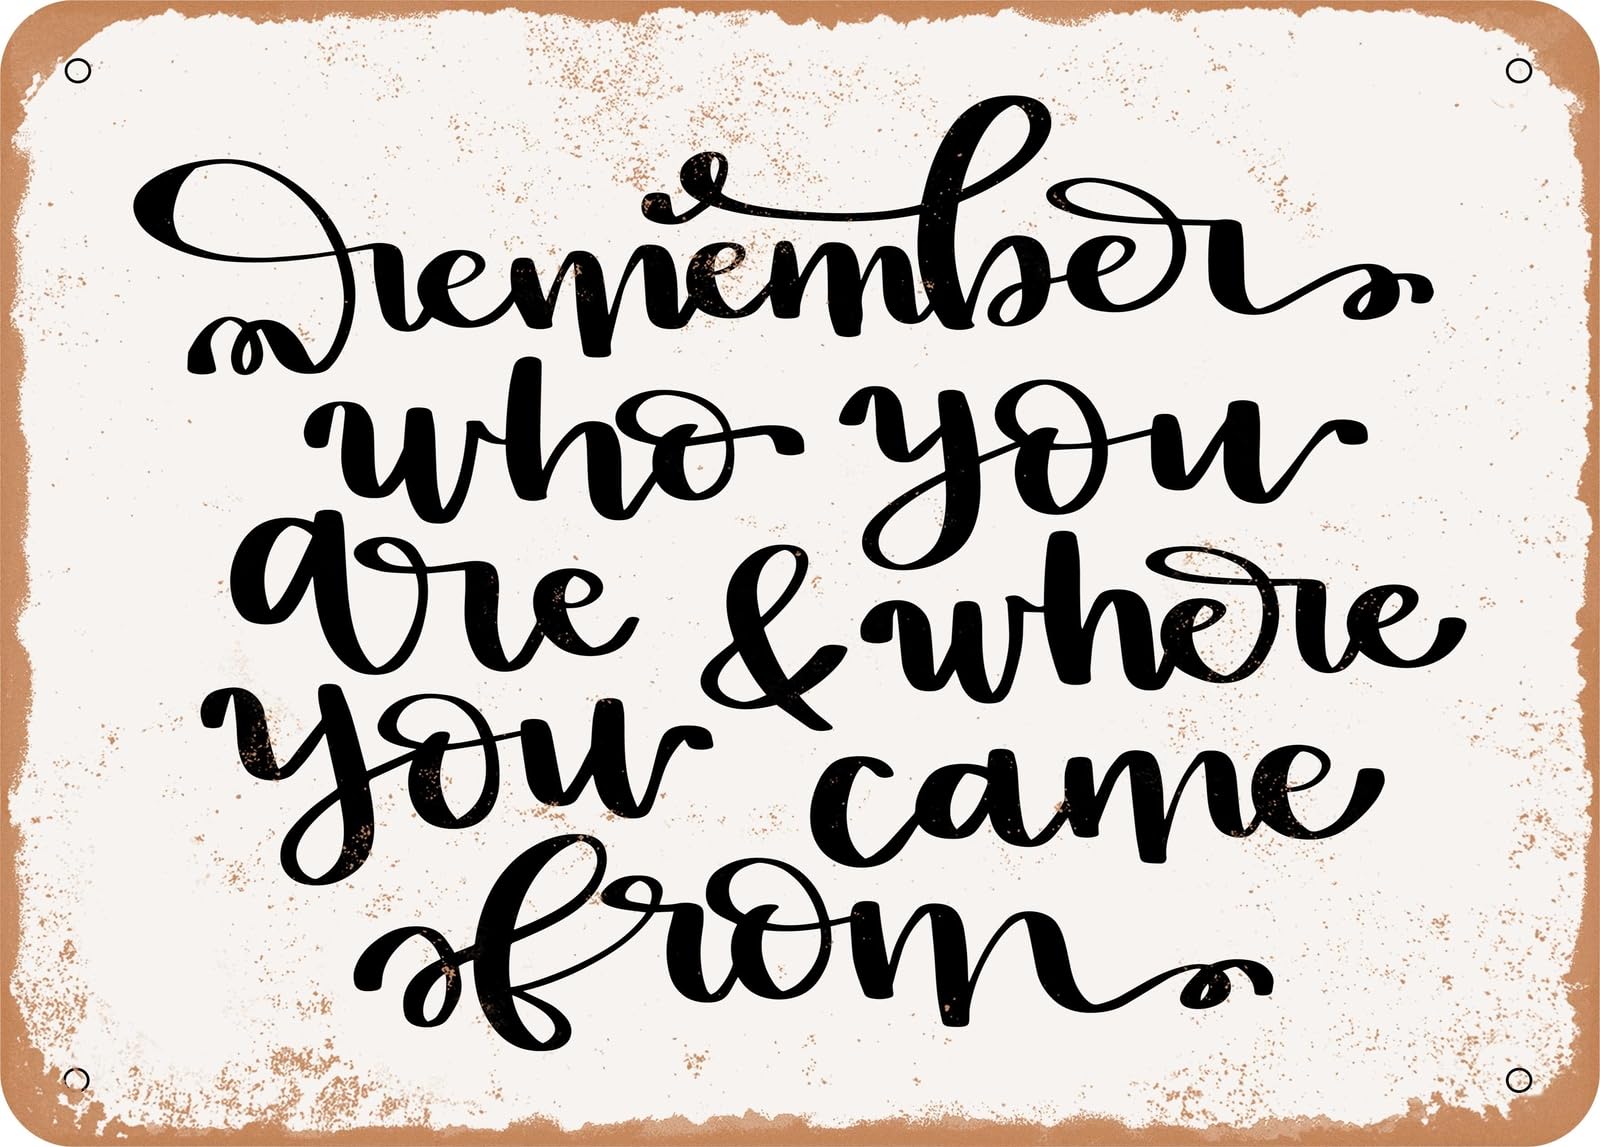 remember
who you
are & where
you came
from